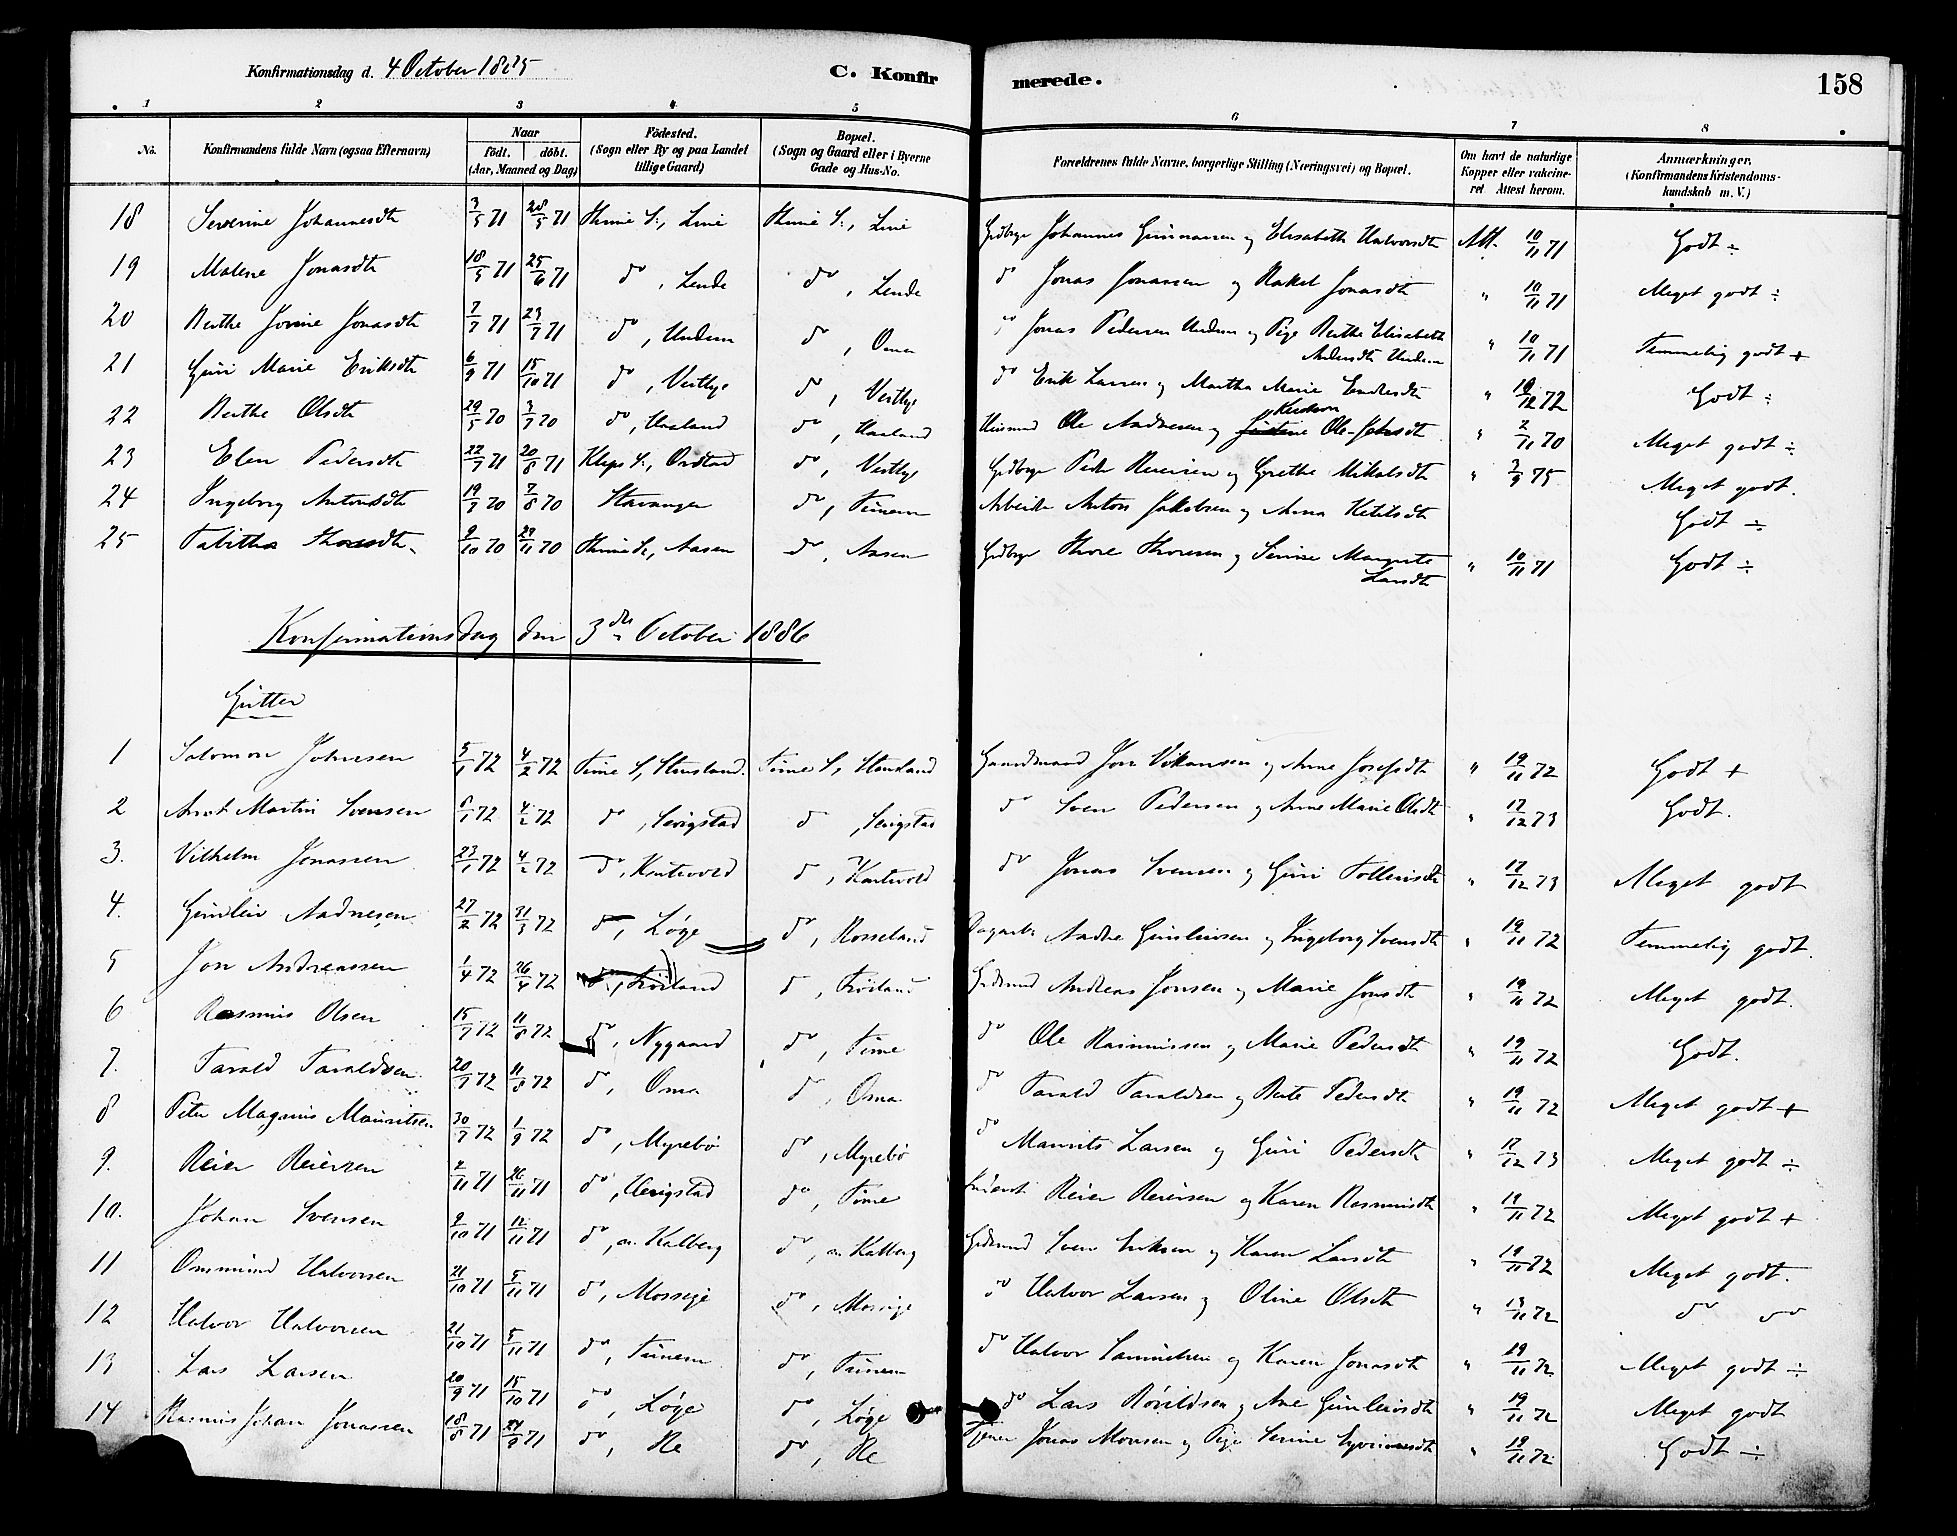 Konfirmationsdag d. 4 October 1885 C. Konfir merede. 158
1 2 3 4 5 6 7 8
No. Konfirmandens fulde Navn (ogsaa Efternavn) Naar födt. döbt. (Aar, Maaned og Dag) Födested. (Sogn eller By og paa Landet tillige Gaard) Bopæl. (Sogn og Gaard eller i Byerne Gade og Hus-No. Forældrenes fulde Navne, borgerlige Stilling (Næringsvei) og Bopæl. Om havt de naturlige Kopper eller vakcineret Attest herom. Anmærkninger. (Konfirmandens Kristendomskundskab m. V.)
18 Severine Johannesdtr 3/5 71 28/5 71 Thime S., Line Thime S., Line Grdbrgr Johannes Gunnarsen og Elisabeth Halvorsdtr Att. 10/11 71 Godt ÷
19 Malene Jonasdtr 18/5 71 25/6 71 do, Lende do, Lende do Jonas Jonassen og Rakel Jonasdtr " 10/11 71 Meget godt ÷
20 Berthe Jorine Jonasdtr 7/7 71 23/7 71 do, Undem do, Oma do Jonas Pedersen Undem og Pige Berthe Elisabeth " 10/11 71 Temmelig godt +
Andersdtr Undem
21 Guri Marie Eriksdtr 6/9 71 15/10 71 do, Vestlye do, Vestlye do Erik Larsen og Martha Marie Endresdtr " 10/12 72 Godt ÷
22 Berthe Olsdtr 29/5 70 3/7 70 do, Haaland do, Haaland Huusmd Ole Andersen og Ole-Johsdtr " 2/11 70 Meget godt ÷
23 Elen Pedersdtr 22/7 71 20/8 71 Klepp S., Orstad do, Vestlye Grdbrgr Peder Reiersen og Grethe Mikalsdtr " 3/9 75 Meget godt.
24 Ingeborg Antonsdtr 19/7 70 7/8 70 Stavanger do, Tunem Arbeider Anton Jakobsen og Anna Ketilsdtr Godt ÷
25 Tabitha Thoresdtr. 9/10 70 29/11 70 Thime S., Aasen do, Aasen Grdbrgr Thore Thoresen og Serine Margrete " 10/11 71 Godt ÷
Larsdtr
Konfirmationsdag den 3die October 1886
Gutter
1 Salomon Johnsen 5/1 72 4/2 72 Time S, Stensland. Time S, Stensland Gaardmand Jon Vikansen og Anne Josefsdtr " 19/11 72 Godt +
2 Arnt Martin Svensen 6/1 72 4/2 72 do, Serigstad do, Serigstad do Sven Pedersen og Anne Marie Olsdtr " 17/12 73 Godt.
3. Vilhelm Jonassen 23/1 72 4/2 72 do, Kartevold do, Kartevold do Jonas Svensen og Guri Tollevsdtr " 17/12 73 Meget godt
4. Gunleiv Aadnesen 27/2 72 31/3 72 do, Løge do, Rosseland Dagarb. Aadne Gunleivsen og Ingeborg Svensdtr " 19/11 72 Temmelig godt.
5 Jon Andreassen 1/4 72 26/4 72 do, Fröiland do, Fröiland Grdmnd Andreas Jonsen og Marie Jonsdtr " 19/11 72 Meget godt.
6 Rasmus Olsen 15/7 72 11/8 72 do, Nygaard do, Time do Ole Rasmussen og Marie Pedersdtr " 19/11 72 Godt.
7. Tarald Taraldsen 20/7 72 11/8 72 do, Oma do, Oma do Tarald Taraldsen og Berte Pedersdtr " 19/11 72 Meget godt +
8 Peter Magnus Mauritsen 30/7 72 1/9 72 do, Myrebø do, Myrebø do Maurits Larsen og Guri Pedersdtr " 17/12 73 Meget godt ÷
9. Reier Reiersen 2/11 71 26/11 71 do, Herigstad do, Time Reier Reiersen og Karen Rasmusdtr " 19/11 72 Meget godt +
10. Johan Svensen 9/10 71 12/11 71 do, ø. Kalberg do, ø. Kalberg Grdmnd Sven Eriksen og Karen Larsdtr " 19/11 72 Meget godt.
11 Ommund Halvorsen 21/10 71 5/11 71 do, Mossige do, Mossige do Halvor Larsen og Oline Olsdtr " 19/11 72 do do
12 Halvor Halvorsen 21/10 71 5/11 71 do, Tunem do, Tunem do Halvor Samuelsen og Karen Jonasdtr " 19/11 72 Meget godt ÷
13 Lars Larsen 20/9 71 15/10 71 do, Løge do, Løge do Lars Rovildsen og Ane Gunleivsdtr " 19/11 72 Meget godt
14 Rasmus Johan Jonassen 18/8 71 24/9 71 do, Re do, Re Tjener Jonas Monsen og Pige Serine Eyvindsdtr " 19/11 72 Godt ÷